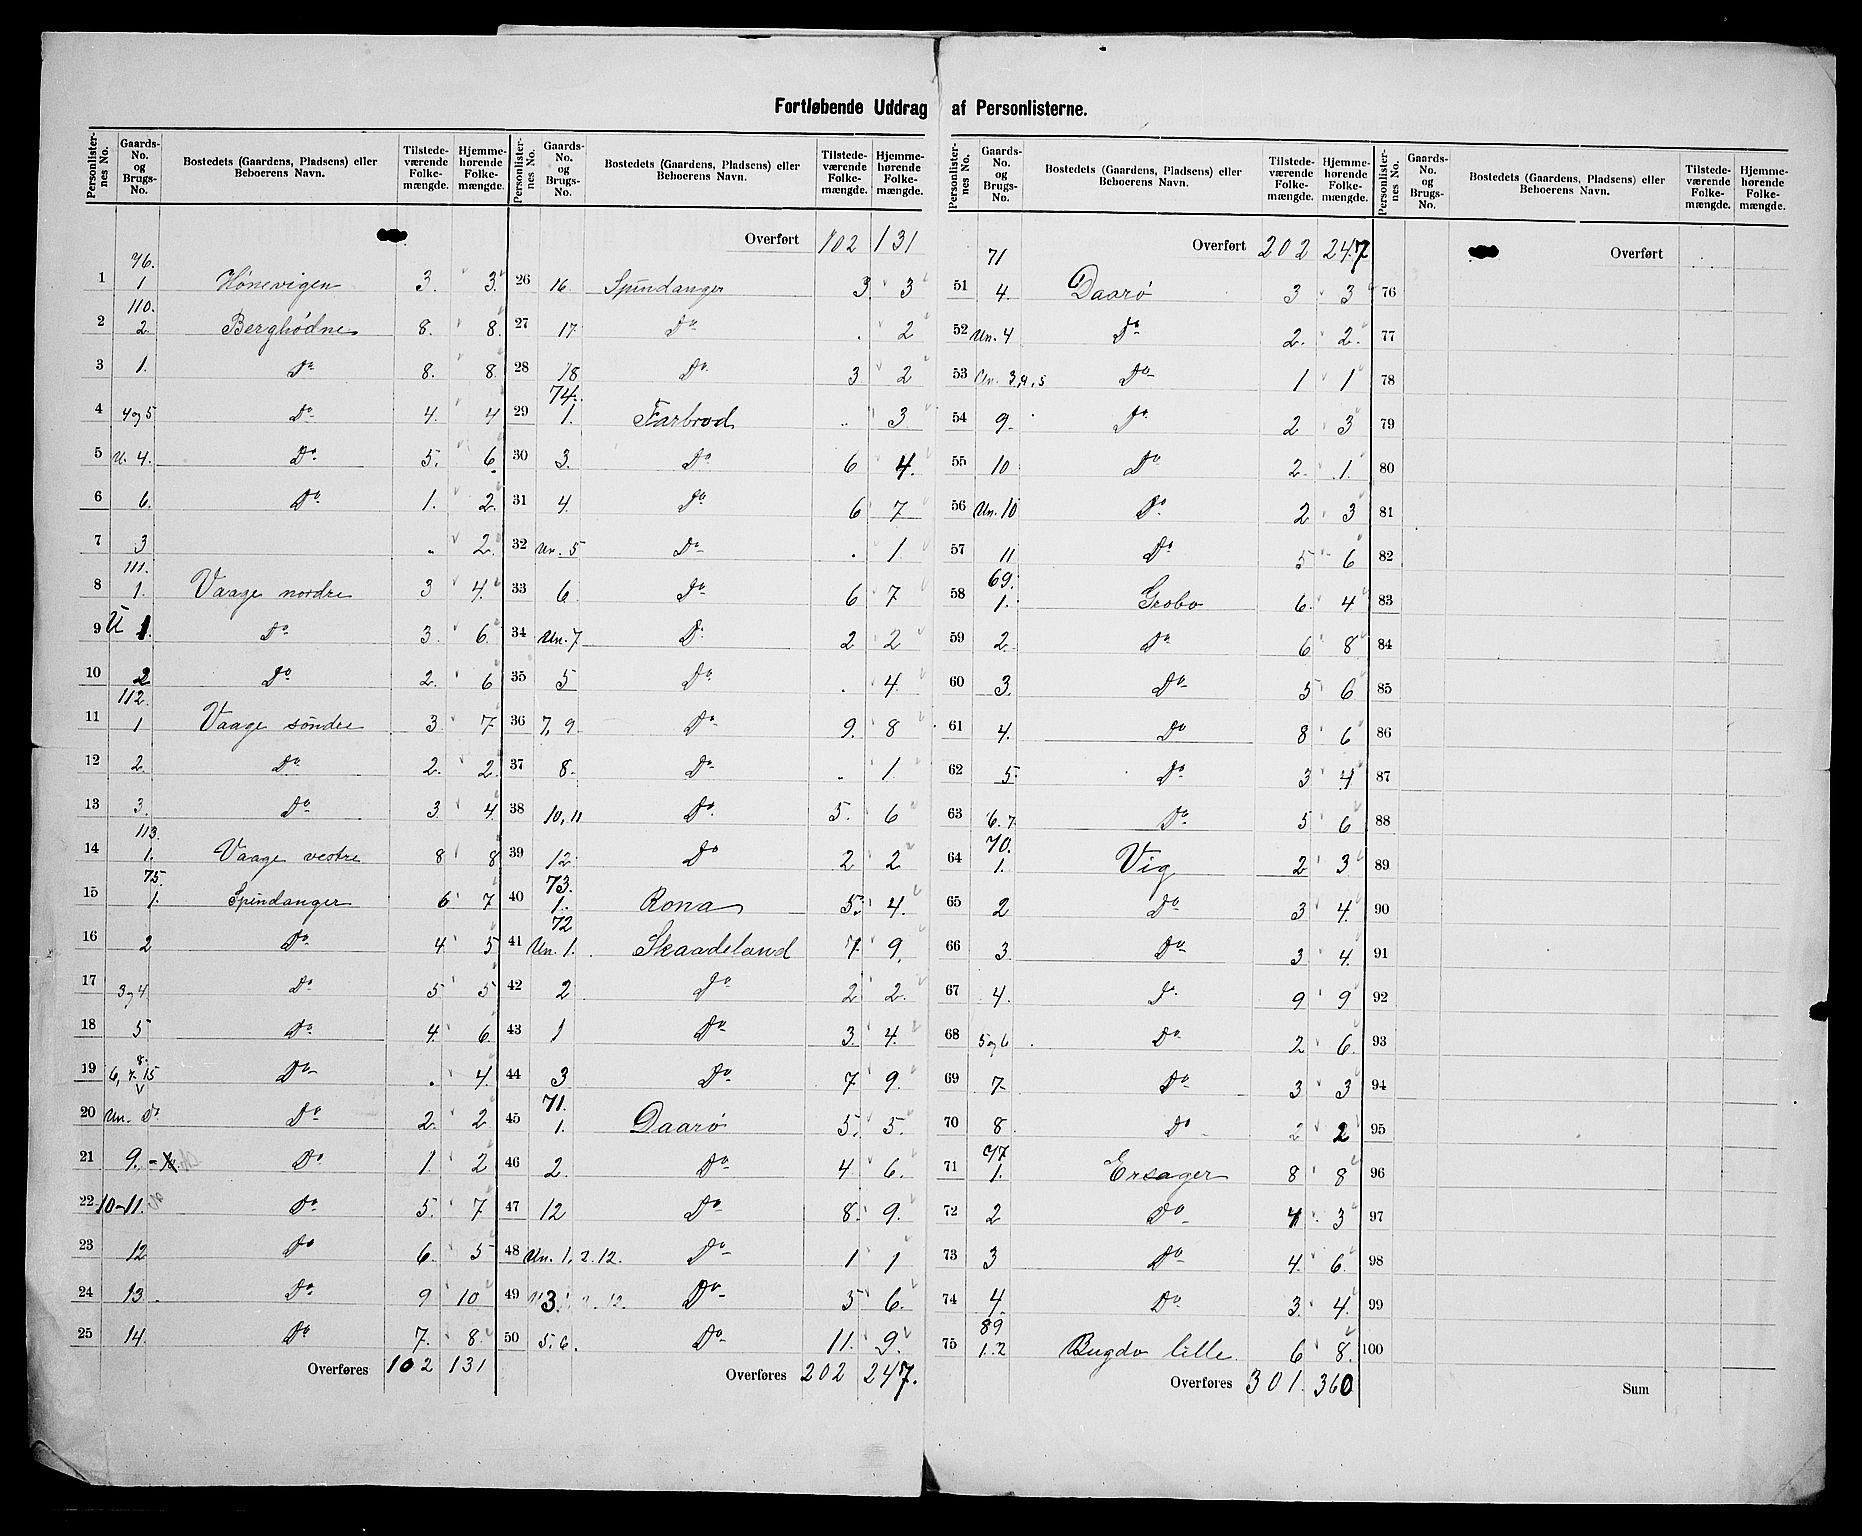 Fortløbende Uddrag af Personlisterne.
Personlister-nes No. Gaards-No. og Brugs-No. Bostedets (Gaardens, Pladsens) eller Beboerens Navn. Tilstede-værende Folke-mængde. Hjemme-hørende Folke-mængde.
76.
1 1 Hønevigen 3. 3
110.
2 2. Berghødne 8. 8.
3 1. Do 8. 8
4 4og5 Do 4. 4
5 U. 4. Do 5. 6
6 6. Do 1. 2.
7 3 . 2.
111.
8 1. Vaage nordre 3 4.
9 U 1. Do 3. 6.
10 2 Do 2. 6
112.
11 1 Vaage søndre 3 7
12 2. Do 2. 2.
13 3. Do 3 4.
113.
14 1. Vaage vestre 8 8
75.
15 1. Spindanger 6 7
16 2 Do 4. 5
17 3og4 Do 5 5
18 5 Do 4. 6.
19 6, 7. 8. 15 Do . 4.
20 Un. Do Do 2. 2
21 9. Do 1 2
22 10-11. Do 5. 7
23 12 Do 6. 5
24 13. Do 9 10
25 14. Do 7. 8.
Overføres 102 131
Personlister-nes No. Gaards-No. og Brugs-No. Bostedets (Gaardens, Pladsens) eller Beboerens Navn. Tilstede-værende Folke-mængde. Hjemme-hørende Folke-mængde.
Overført 102 131
26 16. Spindanger 3 3
27 17. Do . 2
28 18 Do 3 2
74.
29 1. Farbrod .. 3
30 3. Do 6 4.
31 4. Do 6 7
32 Un. 5 Do . 1
33 6. Do 6 7
34 Un. 7 Do 2 2
35 5 Do . 4.
36 7, 9 Do 9. 8
37 8. Do . 1.
38 10, 11 Do 5. 6
39 12. Do 2 2
73.
40 1. Rona 5. 4.
72
41 Un. 1. Skaadeland 7. 9.
42 2 Do 2 2.
43 1 Do 3. 4.
44 3 Do 7 9.
71.
45 1. Daarø 5. 5.
46 2. Do 4 6.
47 12 Do 8. 9.
48 Un. 1, 2. 12. Do 1 1
49 3. Do 5 6.
50 5. 6. Do 11. 9.
Overføres 202 247.
Personlister-nes No. Gaards-No. og Brugs-No. Bostedets (Gaardens, Pladsens) eller Beboerens Navn. Tilstede-værende Folke-mængde. Hjemme-hørende Folke-mængde.
Overført 202 247
71
51 4. Daarø 3 3
52 Un. 4 Do 2. 2.
53 Un. 3, 4, 5 Do 1 1
54 9. Do 2 3
55 10 Do 2. 1.
56 Un. 10 Do 2 3
57 11 Do 5 6
69.
58 1. Grobo 6. 4
59 2. Do 6 8
60 3. Do 5 6
61 4. Do 8 6
62 5. Do 3 4
63 6. 7. Do 5 6
70.
64 1. Vig 2 3
65 2 Do 3 4.
66 3 Do 3 4.
67 4. Do 9 9
68 5og6 Do 2 6.
69 7. Do 3 3
70 8. Do 2 2
77
71 1. Ersager 8 8
72 2 Do 4 3
73 3 Do 4. 6.
74 4. Do 3. 4.
89
75 1.2 Bugdø lille. 6 8.
Overføres 301. 360
Personlister-nes No. Gaards-No. og Brugs-No. Bostedets (Gaardens, Pladsens) eller Beboerens Navn. Tilstede-værende Folke-mængde. Hjemme-hørende Folke-mængde.
Overført
76
77
78
79
80
81
82
83
84
85
86
87
88
89
90
91
92
93
94
95
96
97
98
99
100
Sum